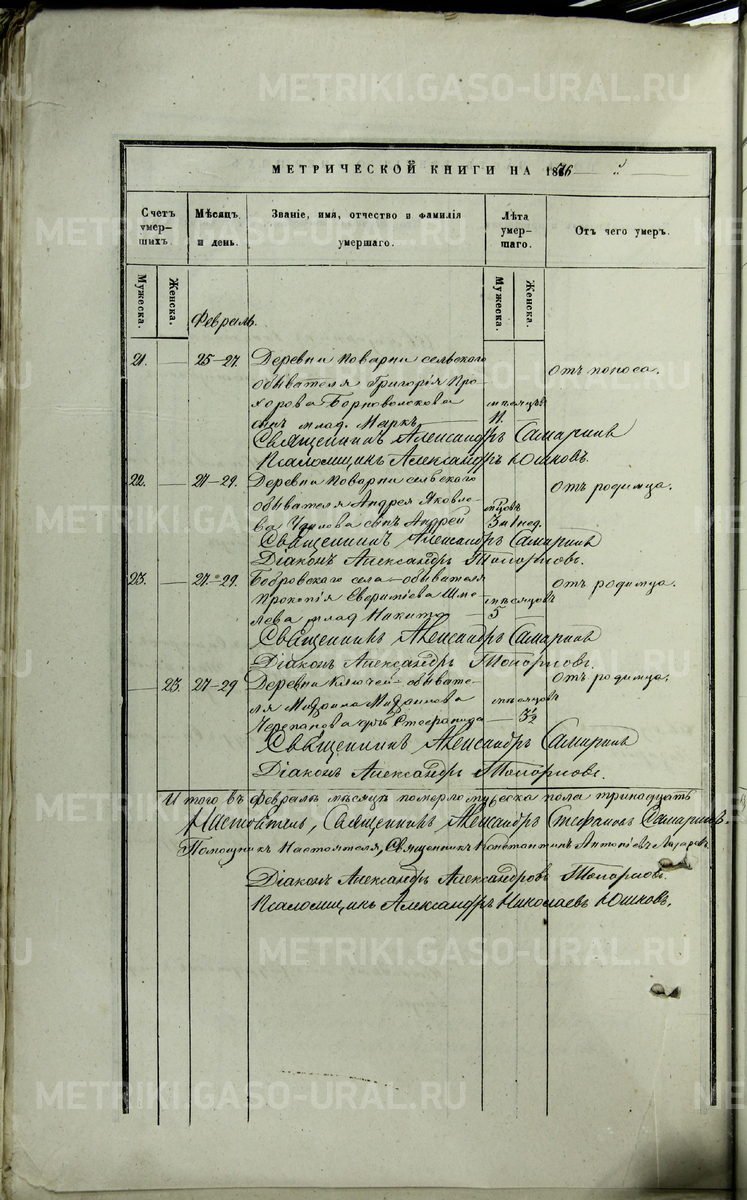 METRIKI.GASO-URAL.RU
МЕТРИЧЕСКОЙ КНИГИ НА 1876
Счетъ умер-шихъ.
Мѣсяцъ и день.
Званіе, имя, отчество и фамилія умершаго.
Лѣта умер-шаго.
Отъ чего умеръ.
Мужеска.
Женска.
Мужеска.
Женска.
Февраль.
21. — 25–27. Деревни Поварни сельскаго
обывателя Григорія Про-
хорова
сынъ млад. Маркъ
мѣсяцевъ 11.
отъ поноса.
Священникъ Александръ Самаринъ
Псаломщикъ Александръ Юшковъ.
22. — 27–29. Деревни Поварни сельскаго
обывателя Андрея Яковле-
ва сынъ Андрей
3 и 1 нед.
отъ родимца.
Священникъ Александръ Самаринъ
Діаконъ Александръ Топорковъ.
23. — 27–29. Бобровскаго села обывателя
Прокопія
млад. Никита
мѣсяцовъ 5
отъ родимца.
Священникъ Александръ Самаринъ
Діаконъ Александръ Топорковъ.
— 23. 27–29 Деревни Ключей обывате-
ля
Черепанова дочь Стефанида
мѣсяцовъ
отъ родимца.
Священникъ Александръ Самаринъ
Діаконъ Александръ Топорковъ.
Итого въ Февралѣ мѣсяцѣ померло мужеска пола тринадцать
Настоятель, Священникъ Александръ Стефановъ Самаринъ.
Помощникъ Настоятеля, Священникъ Константинъ
Діаконъ Александръ Александровъ Топорковъ.
Псаломщикъ Александръ Николаевъ Юшковъ.